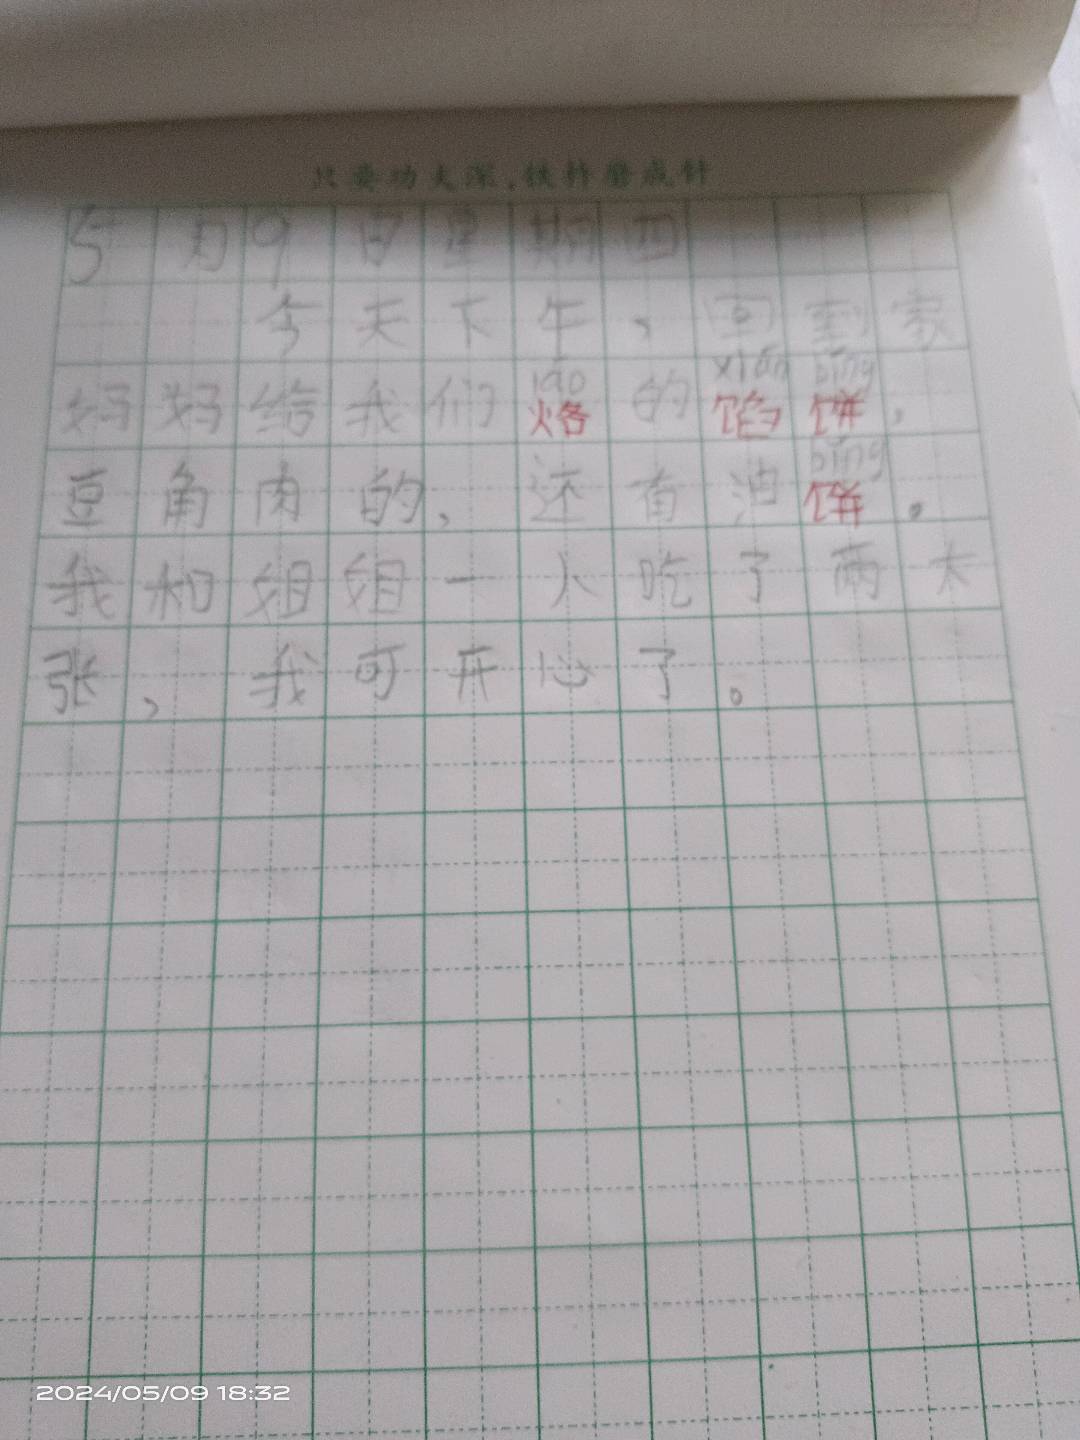 只要功夫深,铁杵磨成针
5月9日星期四
今天下午,
家
妈妈给我们lào烙的xiàn馅bǐng饼,
豆角肉的,还有油bǐng饼。
我和姐姐一人吃了两大
张,我可开心了。
2024/05/09 18:32